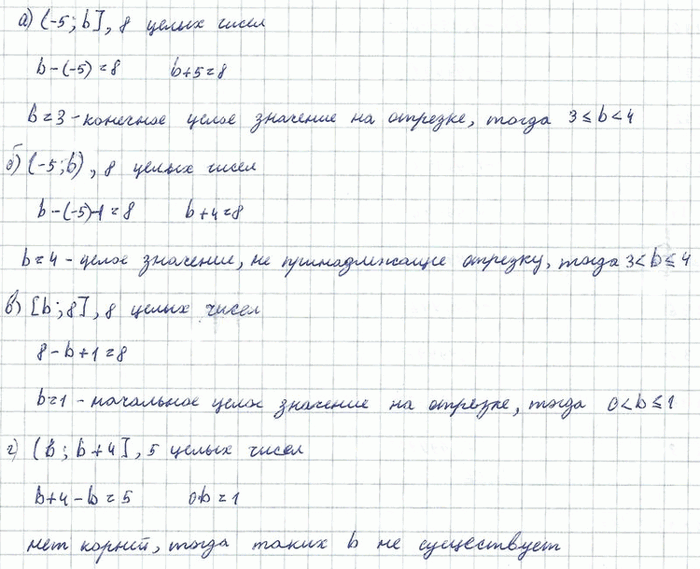 а) (-5; b], 8 целых чисел
b-(-5)=8 b+5=8
b=3 - конечное целое значение на отрезке, тогда 3≤b<4
б) (-5; b), 8 целых чисел
b-(-5)-1=8 b+4=8
b=4 - целое значение, не принадлежащие отрезку, тогда 3<b≤4
в) [b; 8], 8 целых чисел
8-b+1=8
b=1 - начальное целое значение на отрезке, тогда 0<b≤1
г) (b; b+4], 5 целых чисел
b+4-b=5 0b=1
нет корний, тогда таких b не существует